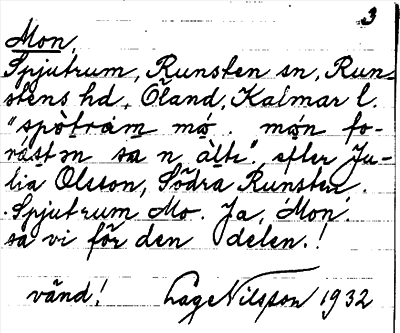 3
Mon,
Spjutrum, Runsten sn, Run-
stens hd, Öland, Kalmar l.
"spòtrùm mó . món fo-
råst ən sa n àltı". efter Ju-
lia Olsson, Södra Runsten.
Spjutrum Mo. Ja, Mon,
sa vi för den delen.!
vänd! Åge Nilsson 1932